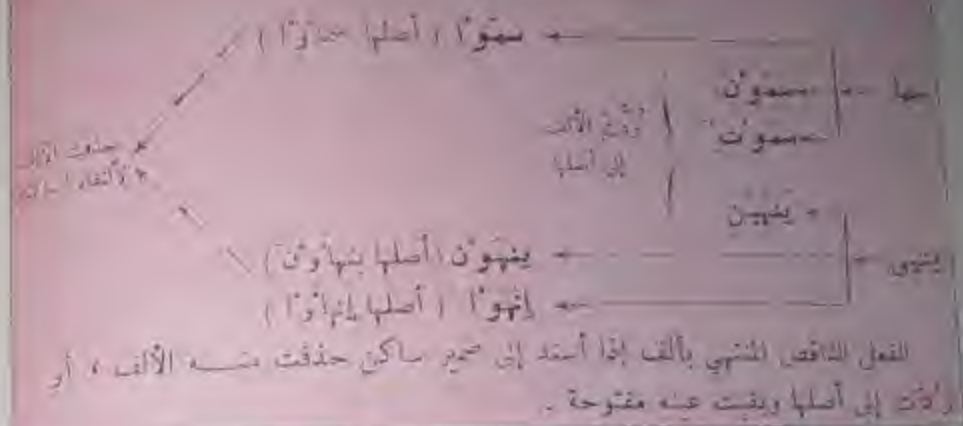 سما ← سمَوْا ( أصلها سماوْا )
سمَوْن
سمَوْت
رُدّت الألف
إلى أصلها
حذفت الألف
لالتقاء
يَنهَيْن
ينهى ← ينهَوْن ( أصلها ينهاوْن )
إنْهَوْا ( أصلها إنهاوْا )
الفعل الناقص المنتهي بألف إذا أسند إلى ضمير ساكن حذفت منــه الألف ، أو
رُدَّت إلى أصلها وبقيت عينه مفتوحة .